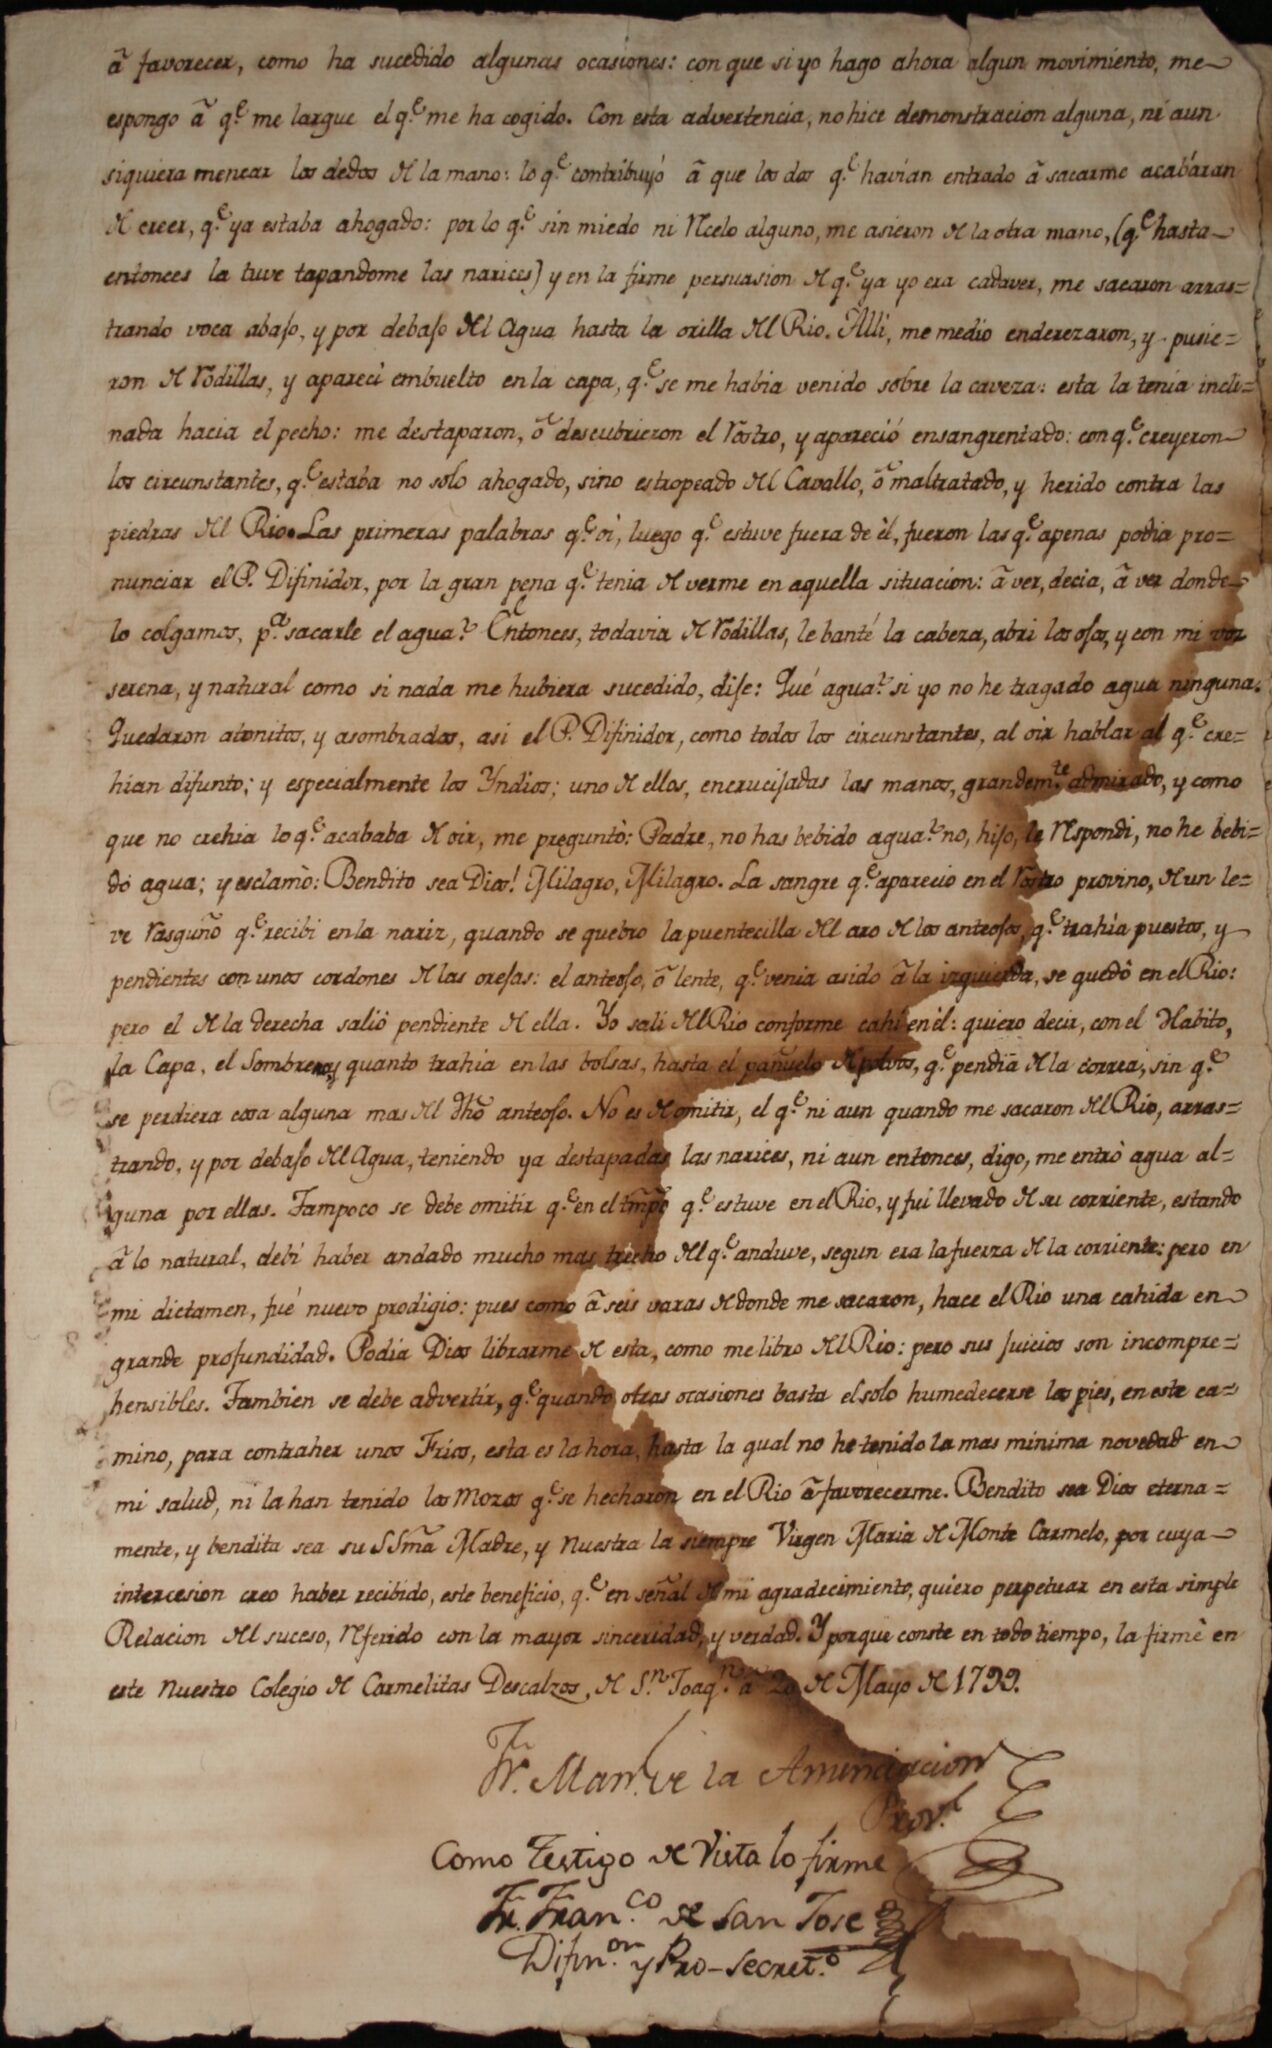 â favorecer, como ha sucedido algunas ocasiones: con que si yo hago ahora algun movimiento, me
espongo â q.e me largue el q.e me ha cogido. Con esta advertencia, no hice demonstracion alguna, ni aun
siquiera menear los dedos de la mano: lo q.e contribuyó â que los dos q.e havían entrado â sacarme acabáran
de creer, q.e ya estaba ahogado: por lo q.e sin miedo ni recelo alguno, me asieron de la otra mano, (q.e hasta
entonces la tuve tapandome las narices) y en la firme persuasion de q.e ya yo era cadaver, me sacaron arras=
trando voca abajo, y por debajo del Agua hasta la orilla del Rio. Alli, me medio enderezaron, y pusie=
ron de rodillas, y aparecì embuelto en la capa, q.e se me habia venido sobre la caveza: esta la tenía incli=
nada hacia el pecho: me destaparon, ô descubrieron el rostro, y apareció ensangrentado: con q.e creyeron
los circunstantes, q.e estaba no solo ahogado, sino estropeado del Cavallo, ô maltratado, y herido contra las
piedras del Rio. Las primeras palabras q.e oì, luego q.e estuve fuera de èl, fueron las q.e apenas podia pro=
nunciar el P. Difinidor, por la gran pena q.e tenia de verme en aquella situacion: â ver, decia, â ver donde
lo colgamos, p.a sacarle el agua? Entonces, todavia de rodillas, lebanté la cabeza, abri los ojos, y con mi voz
serena, y natural como si nada me hubiera sucedido, dije: Qué agua? si yo no he tragado agua ninguna.
Quedaron atonitos, y asombrados, asi el P. Difinidor, como todos los circunstantes, al oir hablar al q.e cre=
hian difunto; y especialmente los Yndios; uno de ellos, encrucijadas las manos, grandem.te admirado, y como
que no crehia lo q.e acababa de oir, me preguntò: Padre, no has bebido agua? no, hijo, le respondi, no he bebi=
do agua; y esclamò: Bendito sea Dios! Milagro, Milagro. La sangre q.e aparecio en el rostro provino, de un le=
ve rasguño q.e recibi en la nariz, quando se quebro la puentecilla del aro de los anteojos, q.e trahía puestos, y
pendientes con unos cordones de las orejas: el anteojo, ô lente, q.e venia asido â la izquierda, se quedô en el Rio:
pero el de la derecha salió pendiente de ella. Yo sali del Rio conforme cahí en èl: quiero decir, con el Habito,
la Capa, el Sombrero, y quanto trahía en las bolsas, hasta el pañuelo de polvos, q.e pendía de la correa, sin q.e
se perdiera cosa alguna mas del dhô anteojo. No es de omitir, el q.e ni aun quando me sacaron del Rio, arras=
trando, y por debajo del Agua, teniendo ya destapadas las narices, ni aun entonces, digo, me entrò agua al=
guna por ellas. Tampoco se debe omitir q.e en el tmpô q.e estuve en el Rio, y fuí llevado de su corriente, estando
â lo natural, debi haber andado mucho mas trecho del q.e anduve, segun era la fuerza de la corriente: pero en
mi dictamen, fué nuevo prodigio: pues como â seis varas de donde me sacaron, hace el Rio una cahida en
grande profundidad. Podia Dios librarme de esta, como me libro del Rio: pero sus juicios son incompre=
hensibles. Tambien se debe advertir, q.e quando otras ocasiones basta el solo humedecerse los pies, en este ca=
mino, para contraher unos Frios, esta es la hora, hasta la qual no he tenido la mas minima novedad en
mi salud, ni la han tenido los Mozos q.e se hecharon en el Rio â favorecerme. Bendito sea Dios eterna=
mente, y bendita sea su SSmâ Madre, y Nuestra la siempre Virgen Maria de Monte Carmelo, por cuya
intercesion creo haber recibido, este beneficio, q.e en señal de mi agradecimiento, quiero perpetuar en esta simple
Relacion del suceso, referido con la mayor sinceridad, y verdad. Y porque conste en todo tiempo, la firmè en
este Nuestro Colegio de Carmelitas Descalzos, de S.n Joaq.n â 20 de Mayo de 1799.
Fr. Man.l de la Anunciacion
Prov.l
Como Testigo de Vista lo firme
Fr. Fran.co de San Jose
Difin.or y Pro-Secret.o